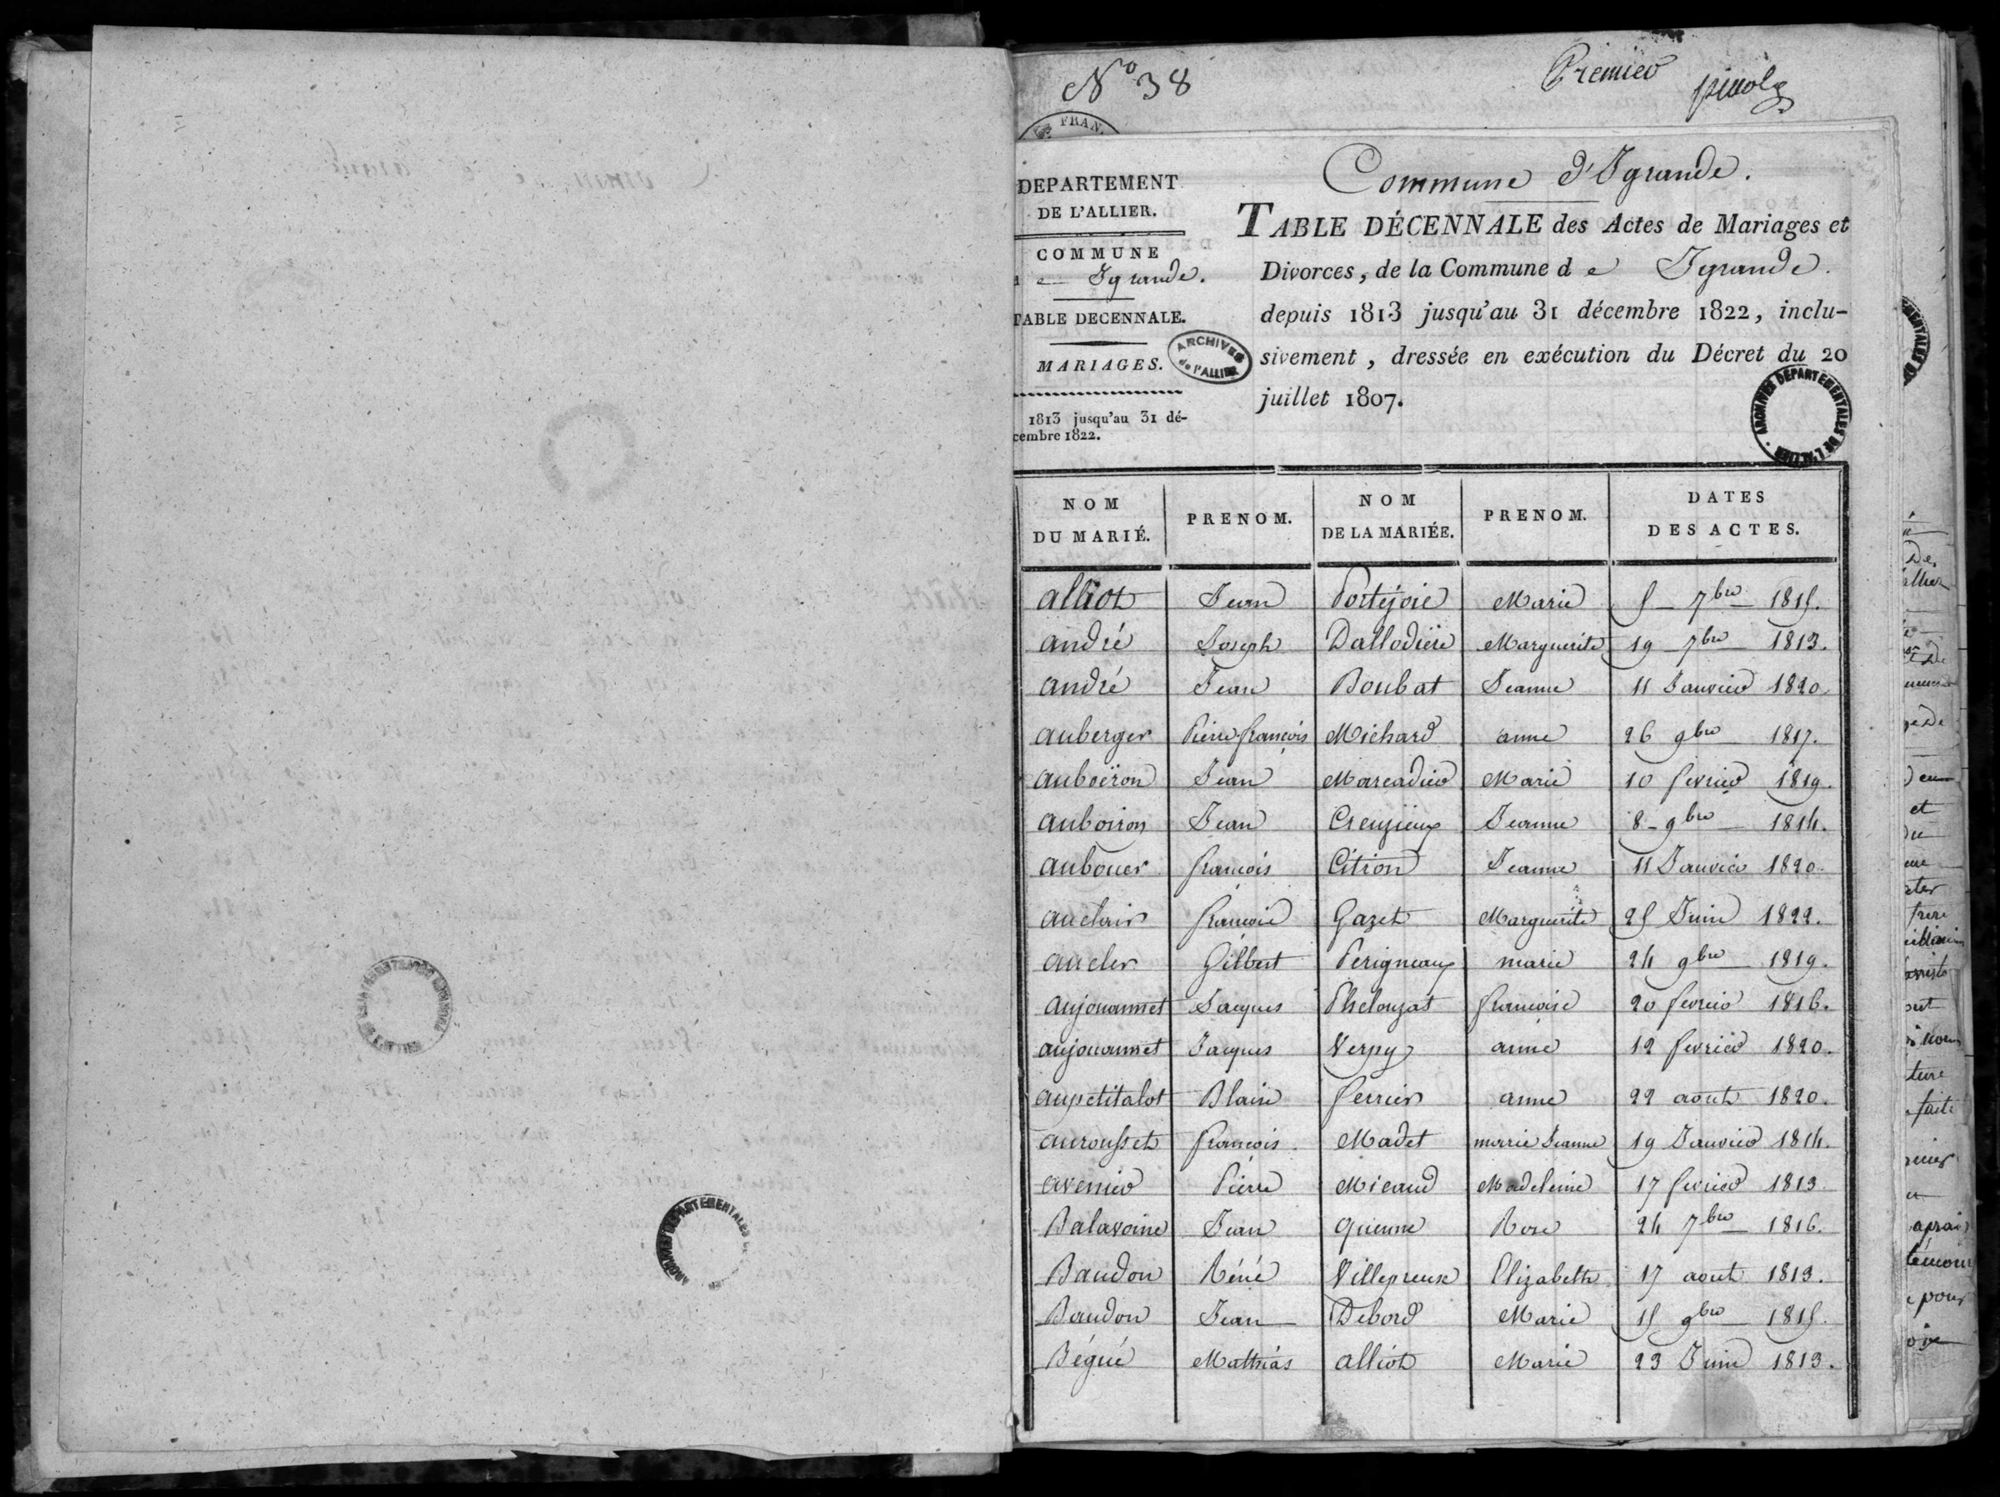 N° 38
Premier
DEPARTEMENT
DE L'ALLIER.
COMMUNE
e Igrande.
TABLE DECENNALE.
MARIAGES.
1813 jusqu'au 31 dé-
cembre 1822.
ARCHIVES
de l'ALLIER
Commune d'Igrande.
TABLE DÉCENNALE des Actes de Mariages et
Divorces, de la Commune d e Igrande.
depuis 1813 jusqu'au 31 décembre 1822, inclu-
sivement, dressée en exécution du Décret du 20
juillet 1807.
ARCHIVES DEPARTEMENTALES DE L'ALLIER
NOM DU MARIÉ. PRENOM. NOM DE LA MARIÉE. PRENOM. DATES DES ACTES.
alliot Jean Portejoie Marie 5 7bre 1815.
andré Joseph Dallodière Marguerite 19 7bre 1813.
andré Jean Boubat Jeanne 11 Janvier 1820.
auberger Pierre françois Michard anne 26 9bre 1817.
auboëron Jean Marcadier Marie 10 fevrier 1819.
auboiron Jean Creuzieux Jeanne 8 9bre 1814.
aubouer françois Citron Jeanne 11 Janvier 1820.
auclair françois Gazet Marguerite 25 Juin 1822.
aucler Gilbert Perigneaux marie 24 9bre 1819.
aujouannet Jacques Phelouzat francoise 20 fevrier 1816.
aujouannet Jacques Verpy anne 12 fevrier 1820.
aupetitalot Blaise ferrier anne 22 aout 1820.
aurousset françois Madet marie Jeanne 19 Janvier 1814.
avenier Pierre Micaud Madeleine 17 fevrier 1813
Balavoine Jean Guenne Rose 24 7bre 1816.
Baudon Réné Villepreux Elizabeth 17 aout 1813.
Baudon Jean Debord Marie 15 9bre 1815.
Bégué Mathias alliot Marie 23 Juin 1813.